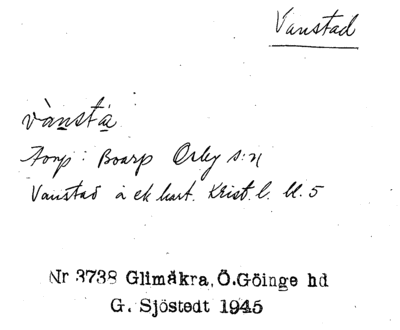 Vanstad
vànstá
Torp: Boarp Örky s:n
Vanstad å ek kart. Krist. l. bl. 5
Nr 3738 Glimåkra, Ö.Göinge hd
G. Sjöstedt 1945